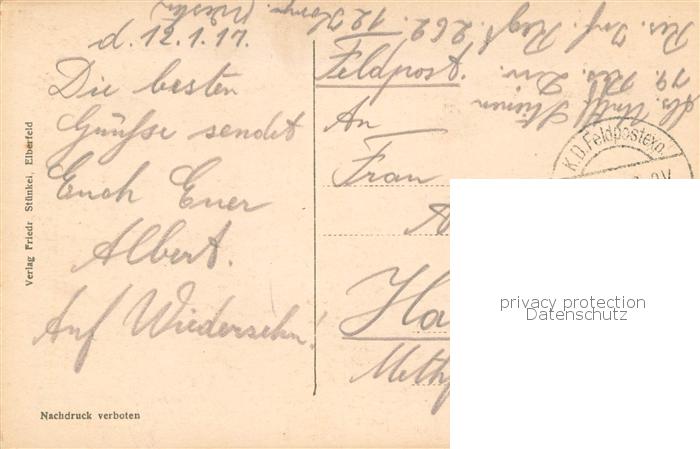 d. 12.1.17.
Die besten
Grüße sendet
Euch Euer
Albert.
Auf Wiedersehn!
Feldpost.
An
Frau
Ha
Meth
Res. Inf. Regt. 262. 12 Komp.
79. Res. Div.
Abs. Untf.
K.D.Feldpostexp.
Verlag Friedr Stünkel, Elberfeld
Nachdruck verboten
privacy protection
Datenschutz